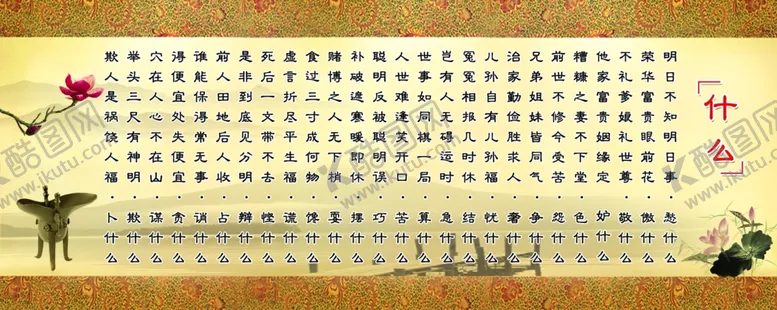 什么
明日不知明日事·愁什么
荣华富贵眼前花·傲什么
不礼爹娘礼世尊·敬什么
他家富贵前缘定·妒什么
糟糠之妻不下堂·色什么
前世不修今受苦·怨什么
兄弟姐妹皆同气·争什么
治家勤俭胜求人·奢什么
儿孙自有儿孙福·忧什么
冤冤相报几时休·结什么
岂有人无得运时·急什么
世事如同棋一局·算什么
人世难逢笑开口·苦什么
聪明反被聪明误·巧什么
补破遮寒暖即休·摆什么
赌博之人无下梢·耍什么
食过三寸成何物·馋什么
虚言折尽平生福·谎什么
死后一文带不去·悭什么
是非到底见分明·辩什么
前人田地后人收·占什么
谁能保得常无事·诮什么
得便宜处失便宜·贪什么
穴在人心不在山·谋什么
举头三尺有神明·欺什么
欺人是祸饶人福·卜什么